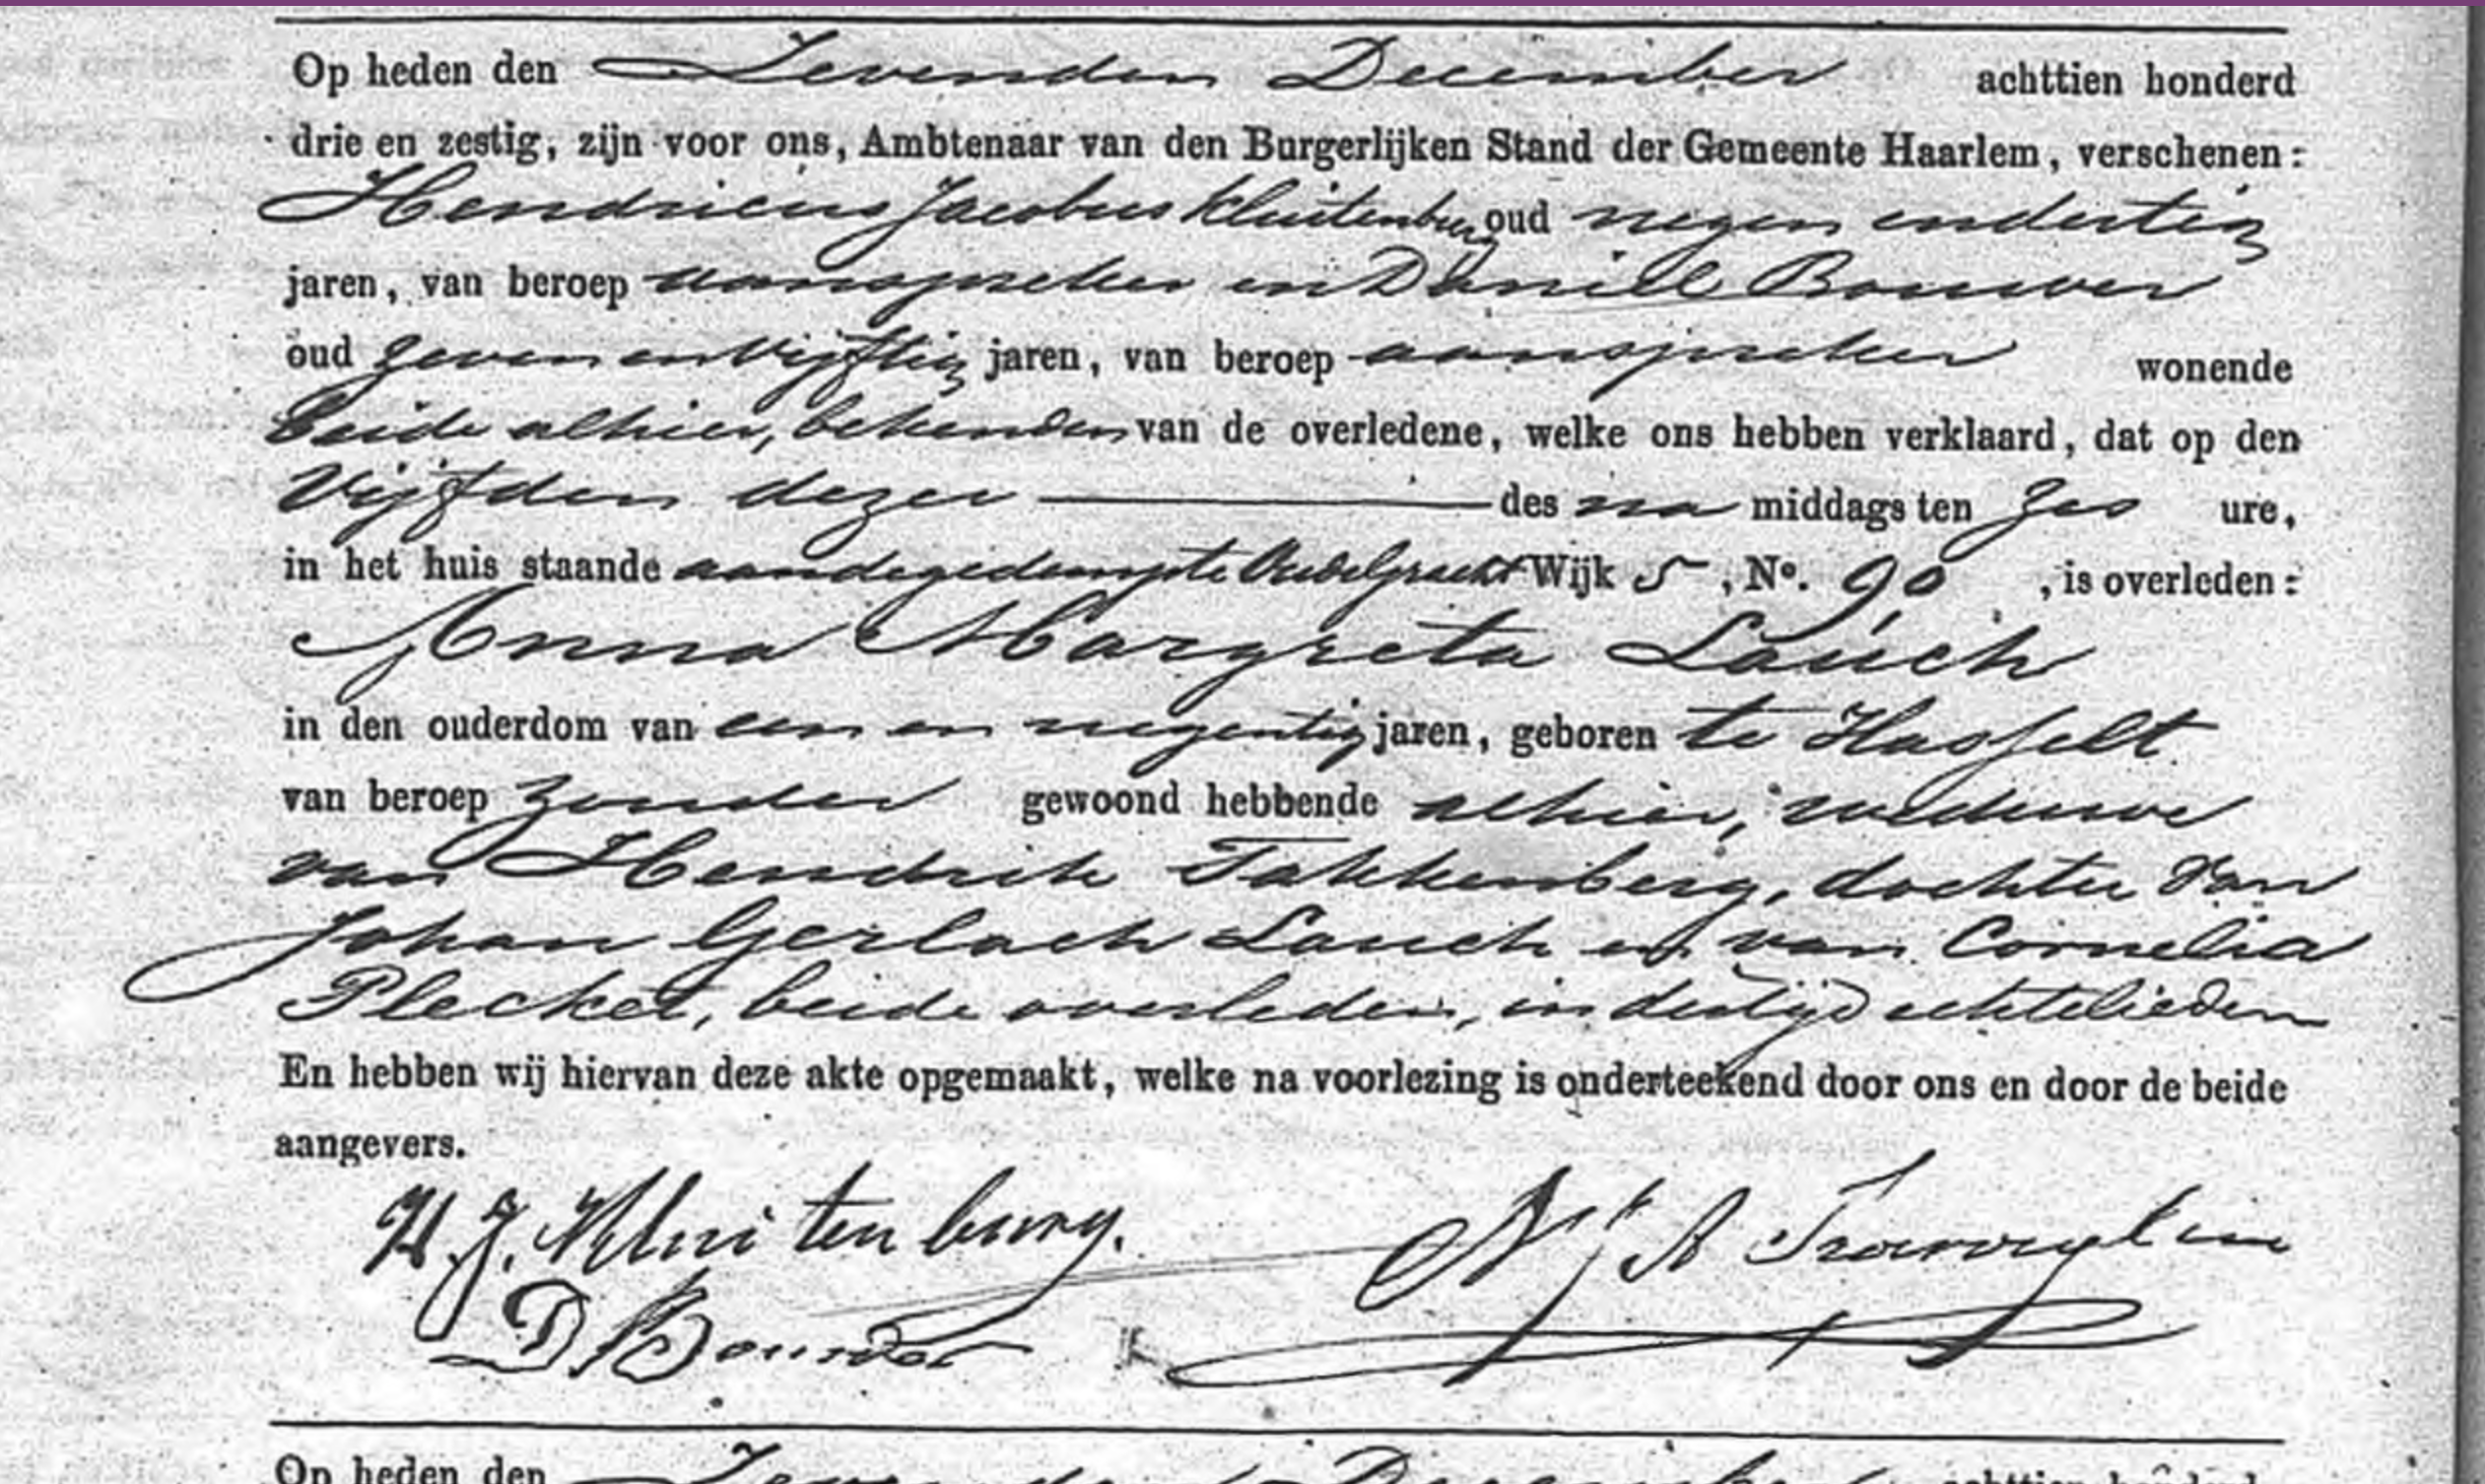 Op heden den Zevenden December achttien honderd
drie en zestig, zijn voor ons, Ambtenaar van den Burgerlijken Stand der Gemeente Haarlem, verschenen:
Hendricus Jacobus Kluitenburg oud negen en dertig
jaren, van beroep aanspreker en Daniel Bouwer
oud zeven en vijftig jaren, van beroep aanspreker wonende
beide alhier, bekenden van de overledene, welke ons hebben verklaard, dat op den
Vijfden dezer des na middags ten zes ure,
in het huis staande aan de gedempte Oude gracht Wijk 5, No. 90, is overleden:
Anna Margreta Lauch
in den ouderdom van een en negentig jaren, geboren te Hasselt
van beroep zonder gewoond hebbende alhier, weduwe
van Hendrik Takkenberg, dochter van
Johan Gerlach Lauch en van Cornelia
Plecket, beide overleden, in der tijd echtelieden
En hebben wij hiervan deze akte opgemaakt, welke na voorlezing is onderteekend door ons en door de beide
aangevers.
H. J. Kluitenburg.
D Bouwer
Op heden den Zevenden December achttien honderd